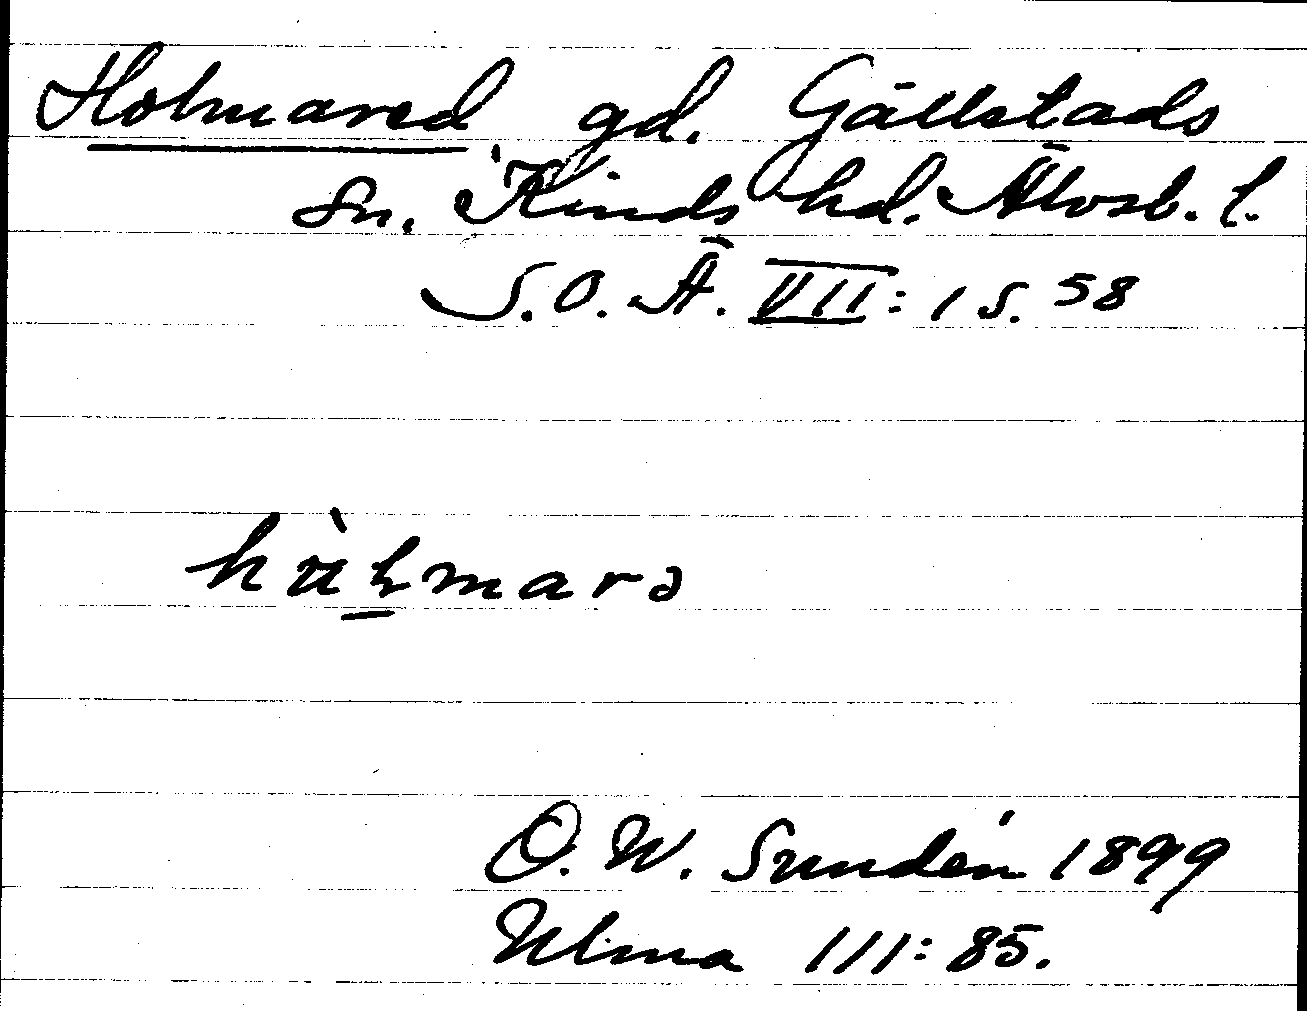 Holmared gd. Gällstads
sn. Kinds hd. Älvsb. l.
S.O.Ä. VII: 1 s. 58
hùlmarə
O. W. Sundén 1899
Ulma 111: 85.